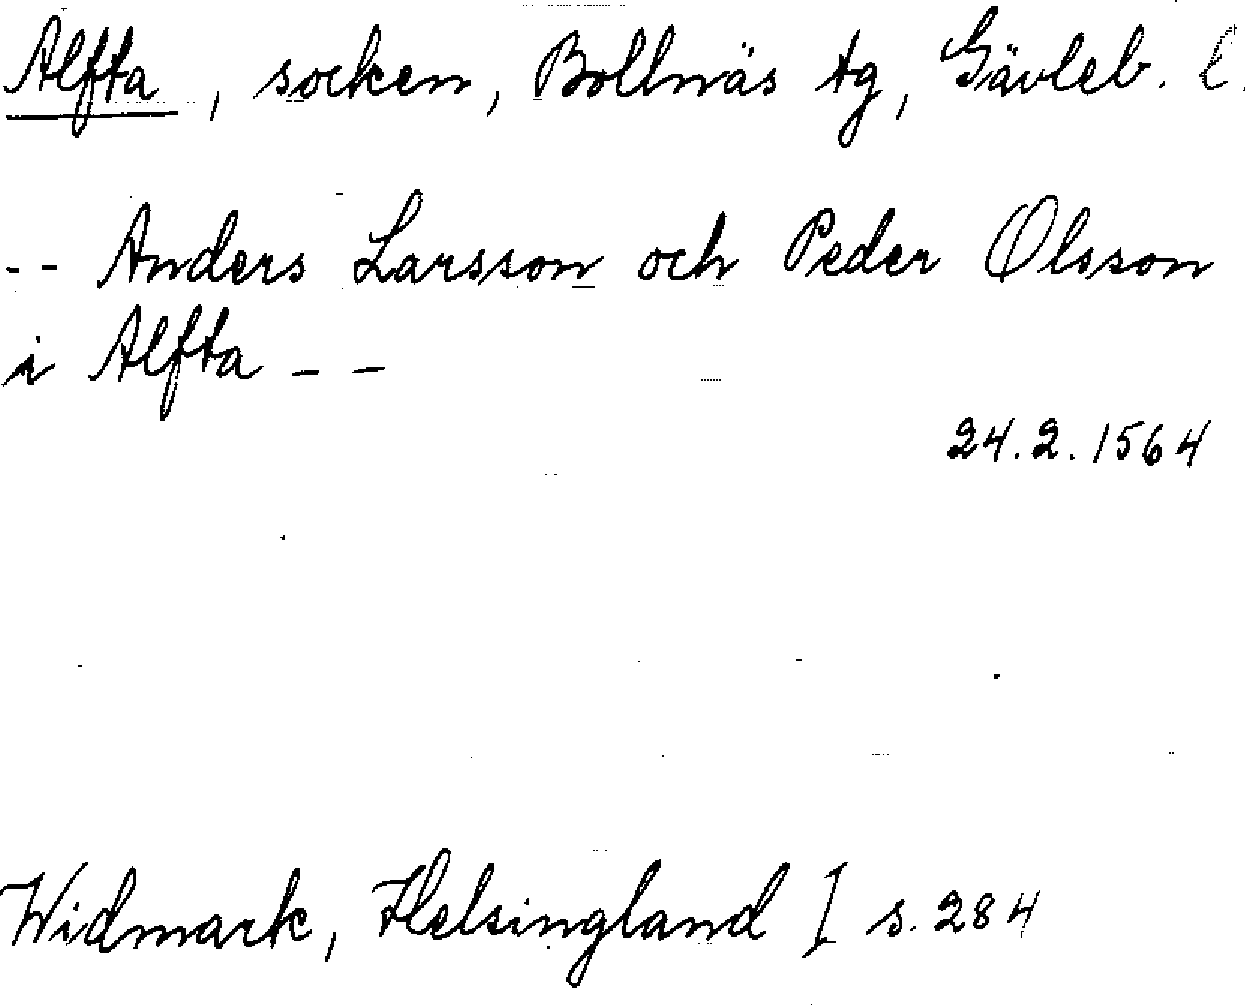 Alfta, socken, Bollnäs tg, Gävleb. l.
-- Anders Larsson och Peder Olsson
i Alfta --
24.2.1564
Widmark, Helsingland I s. 284